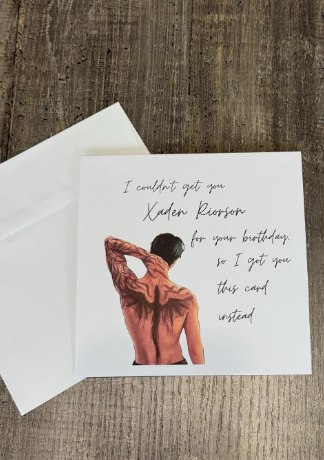 I couldn't get you
Xaden Riorson
for your birthday,
so I got you
this card
instead.